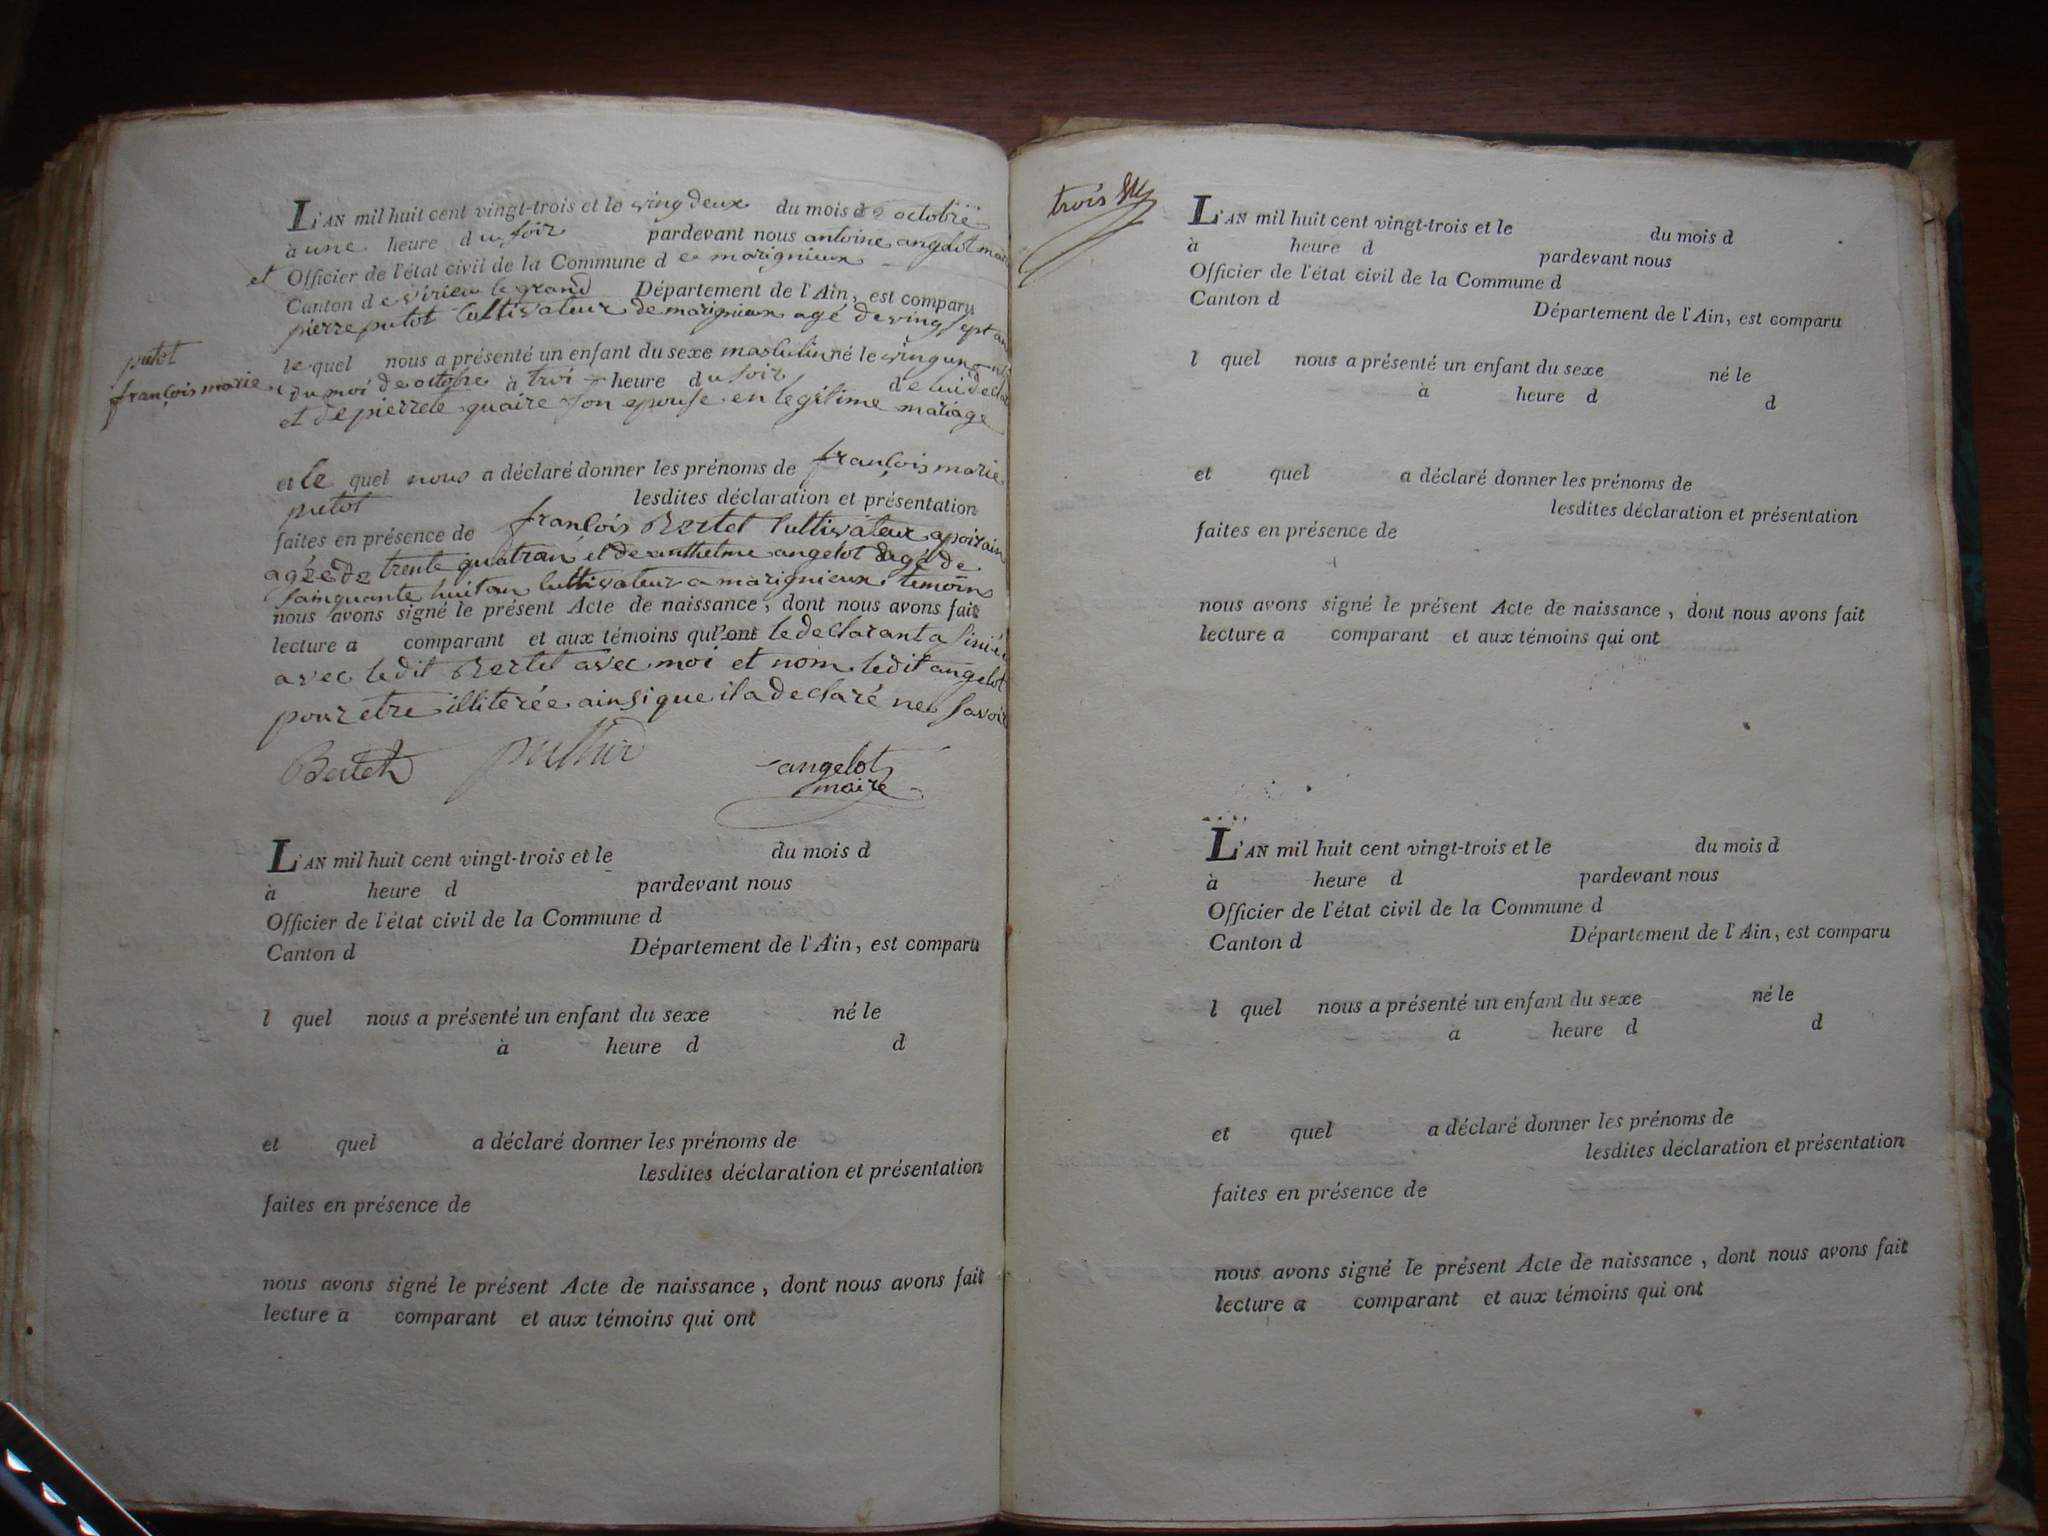 L'AN mil huit cent vingt-trois et le vingdeux du mois de octobre
à une heure du soir pardevant nous antoine angelot maire
et Officier de l'état civil de la Commune de marignieux
Canton de virieu le grand Département de l'Ain, est comparu
pierre putot cultivateur de marignieux agé de ving sept ans
putot
françois marie
le quel nous a présenté un enfant du sexe masculin né le vingun
du moi de octobre à troi heure du soir de lui declarant
et de pierrete quaire son epouse en legitime mariage
et le quel nous a déclaré donner les prénoms de françois marie
putot lesdites déclaration et présentation
faites en présence de françois Bertet cultivateur a poirain
agée de trente quatran et de anthelme angelot agé de
sainquante huit an cultivateur a marignieux temoins
nous avons signé le présent Acte de naissance, dont nous avons fait
lecture a comparant et aux témoins qui ont le declarant a
avec ledit Bertet avec moi et nom ledit angelot
pour etre illiterée ainsi que il a declaré ne savoir
Bertet angelot
maire
L'AN mil huit cent vingt-trois et le du mois d
à heure d pardevant nous
Officier de l'état civil de la Commune d
Canton d Département de l'Ain, est comparu
l quel nous a présenté un enfant du sexe né le
à heure d d
et quel a déclaré donner les prénoms de
lesdites déclaration et présentation
faites en présence de
nous avons signé le présent Acte de naissance, dont nous avons fait
lecture a comparant et aux témoins qui ont
trois
L'AN mil huit cent vingt-trois et le du mois d
à heure d pardevant nous
Officier de l'état civil de la Commune d
Canton d Département de l'Ain, est comparu
l quel nous a présenté un enfant du sexe né le
à heure d d
et quel a déclaré donner les prénoms de
lesdites déclaration et présentation
faites en présence de
nous avons signé le présent Acte de naissance, dont nous avons fait
lecture a comparant et aux témoins qui ont
L'AN mil huit cent vingt-trois et le du mois d
à heure d pardevant nous
Officier de l'état civil de la Commune d
Canton d Département de l'Ain, est comparu
l quel nous a présenté un enfant du sexe né le
à heure d d
et quel a déclaré donner les prénoms de
lesdites déclaration et présentation
faites en présence de
nous avons signé le présent Acte de naissance, dont nous avons fait
lecture a comparant et aux témoins qui ont